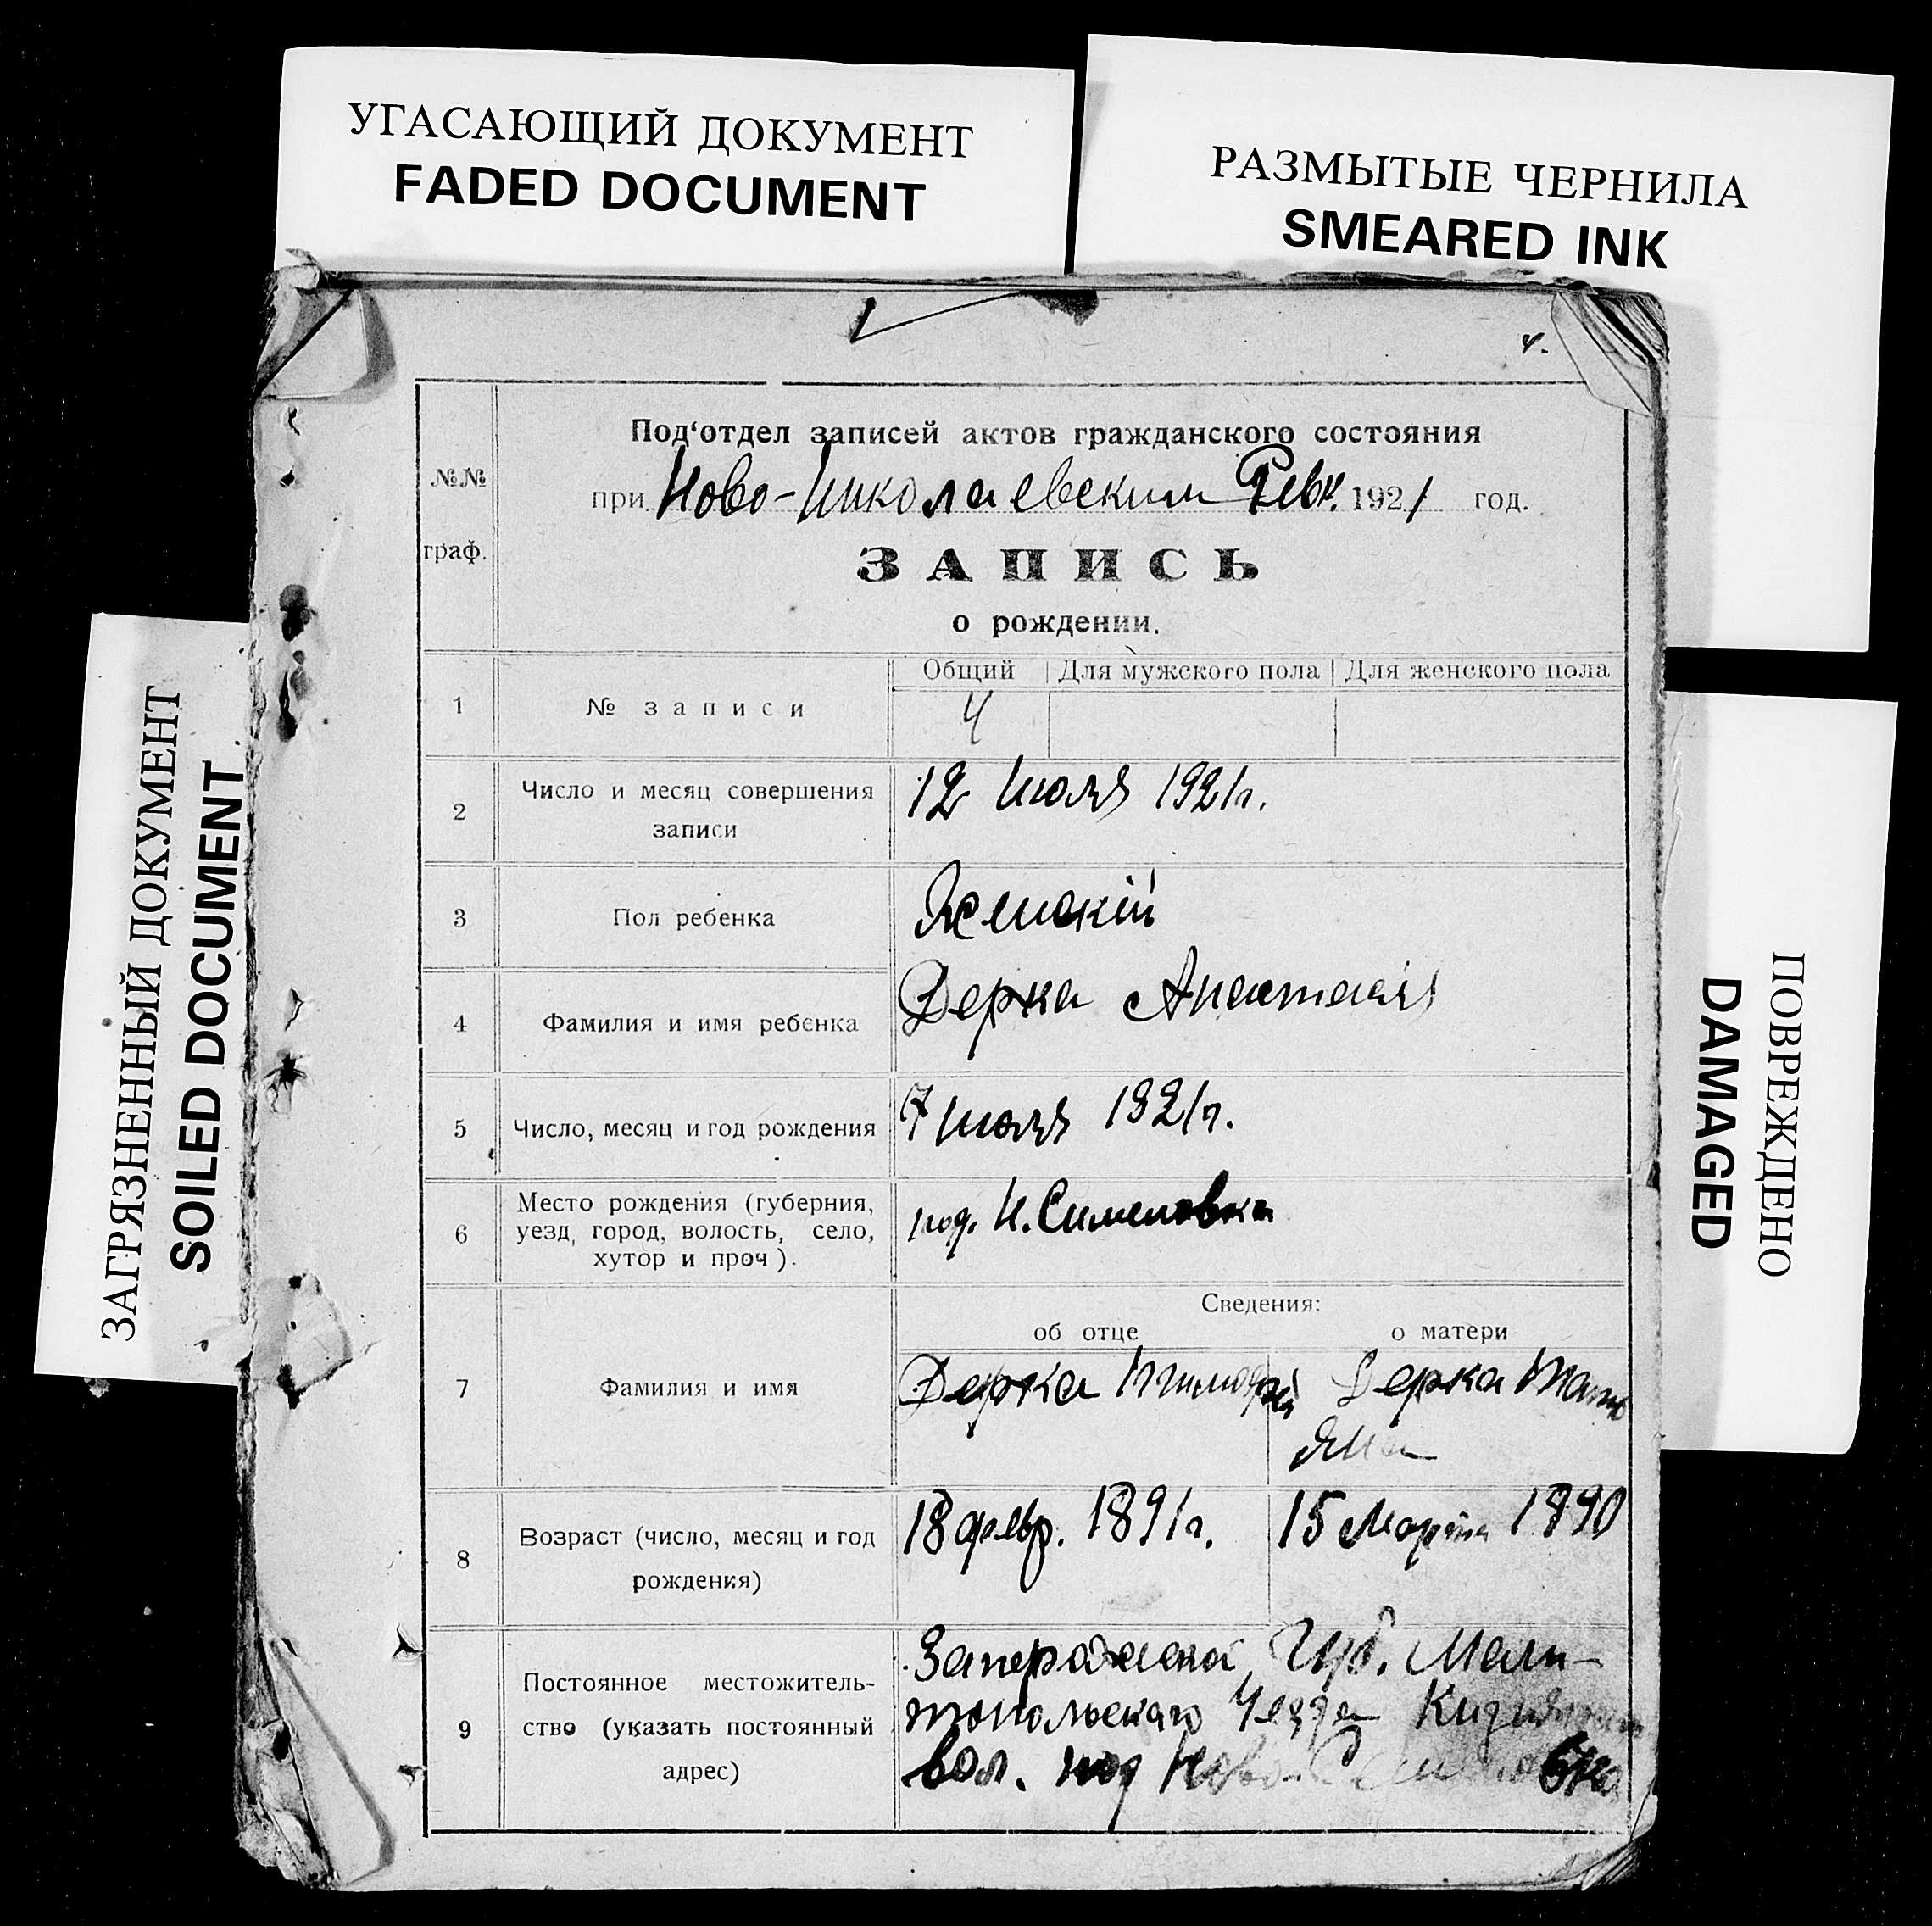 УГАСАЮЩИЙ ДОКУМЕНТ
FADED DOCUMENT
РАЗМЫТЫЕ ЧЕРНИЛА
SMEARED INK
ЗАГРЯЗНЕННЫЙ ДОКУМЕНТ
SOILED DOCUMENT
ПОВРЕЖДЕНО
DAMAGED
4.
№№
граф.
Под'отдел записей актов гражданского состояния
при Ново-Николаевским Ревк. 1921 год.
ЗАПИСЬ
о рождении.
Общий Для мужского пола Для женского пола
1 № записи 4
2 Число и месяц совершения
записи
12 Июля 1921г.
3 Пол ребенка Женскій
4 Фамилия и имя ребенка Дерка Анастасия
5 Число, месяц и год рождения 7 Июля 1921г.
6 Место рождения (губерния,
уезд, город, волость, село,
хутор и проч).
пос. Н. Сименовка
Сведения:
об отце о матери
7 Фамилия и имя Дерка Тимофей Дерка Тать
яна
8 Возраст (число, месяц и год
рождения)
18 февр. 1891г. 15 Марта 1890
9 Постоянное местожитель-
ство (указать постоянный
адрес)
Запорожска Губ. Мели-
топольскаго Уезда
вол. пос Ново-